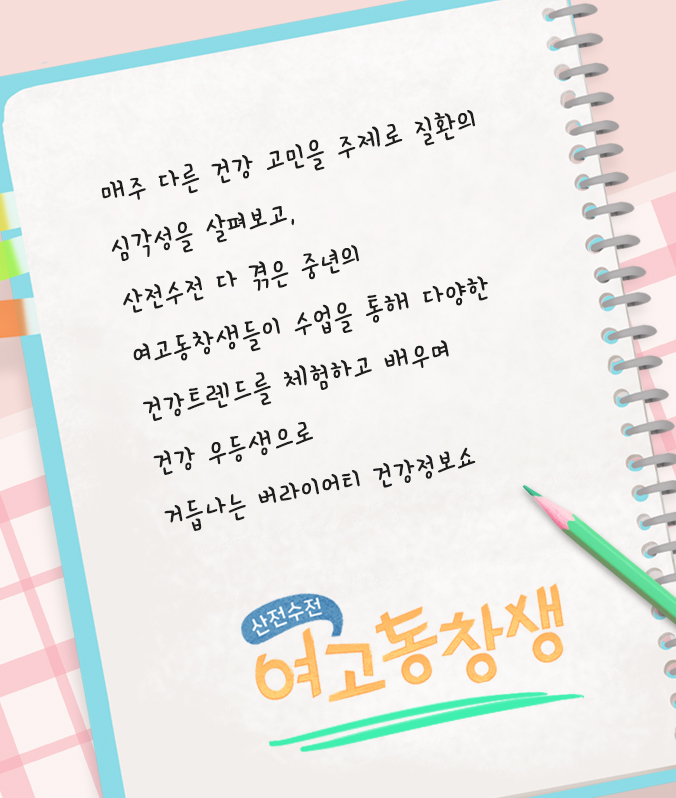 매주 다른 건강 고민을 주제로 질환의
심각성을 살펴보고,
산전수전 다 겪은 중년의
여고동창생들이 수업을 통해 다양한
건강트렌드를 체험하고 배우며
건강 우등생으로
거듭나는 버라이어티 건강정보쇼
산전수전
여고동창생